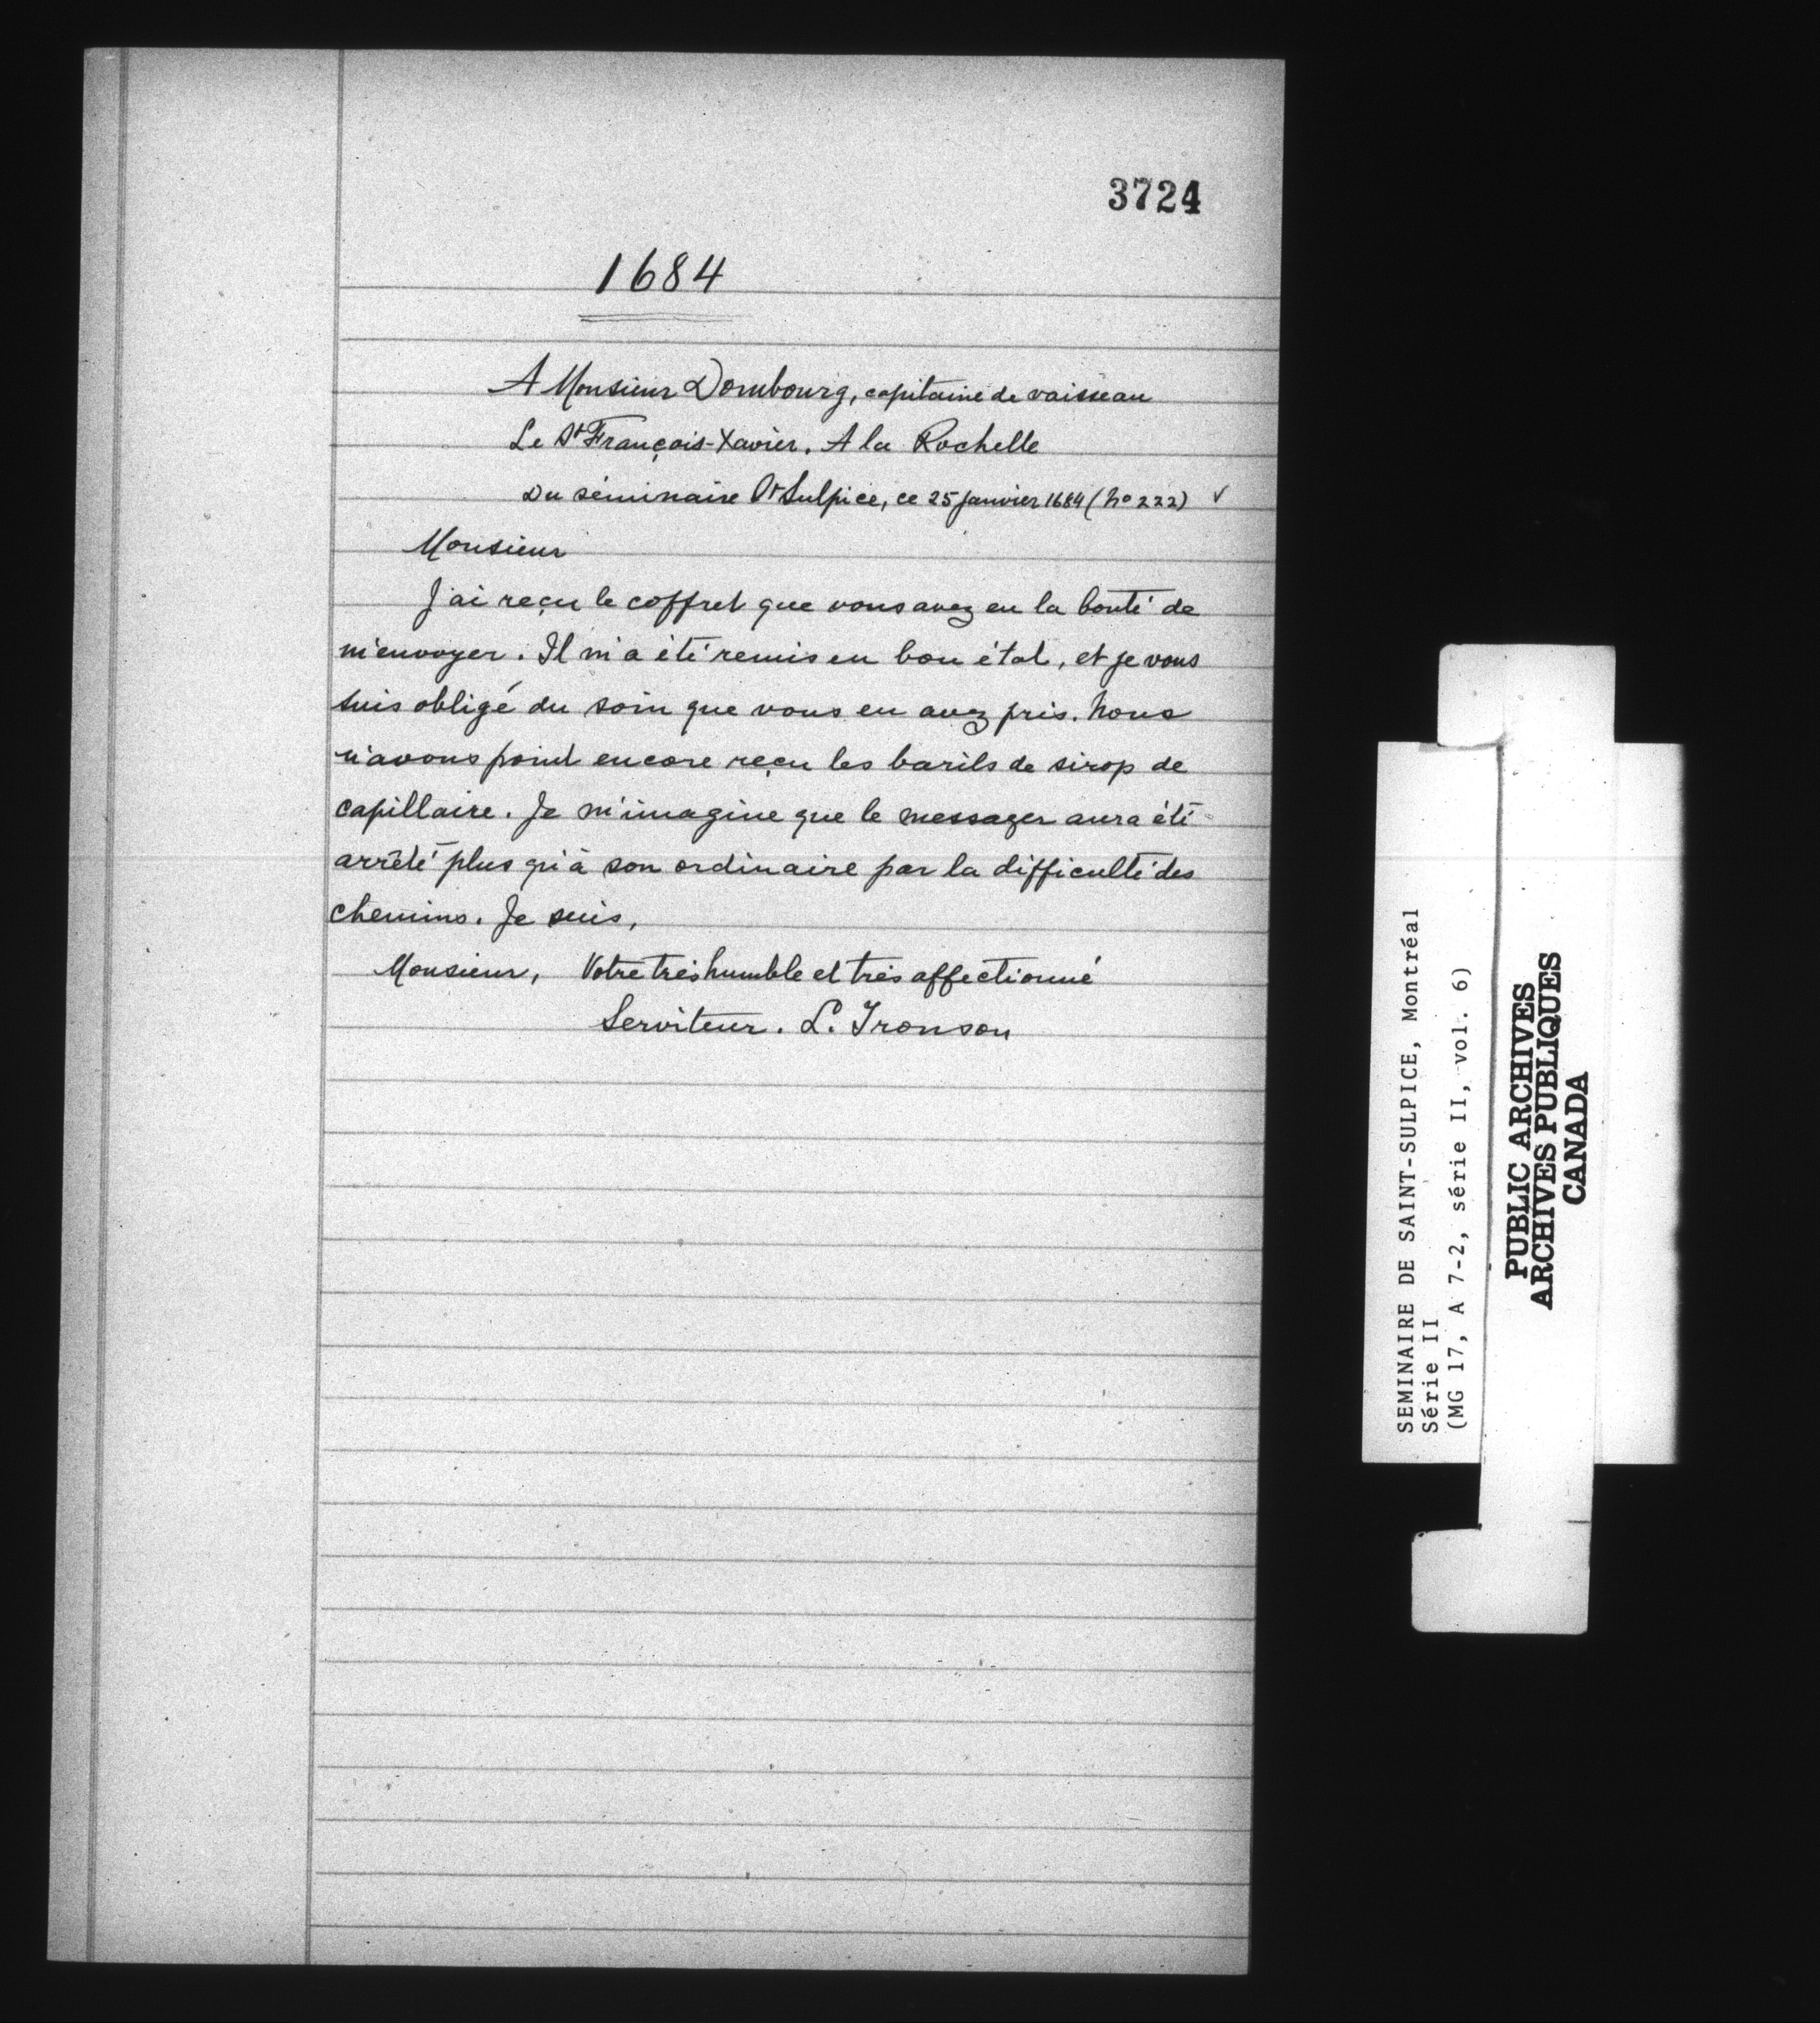 3724
1684
A Monsieur Dombourg, capitaine de vaisseau
Le St François-Xavier. A la Rochelle
Du séminaire St Sulpice, ce 25 janvier 1684 (No 222) v
Monsieur
J'ai reçu le coffret que vous avez eu la bonté de
m'envoyer. Il m'a été remis en bon état, et je vous
suis obligé du soin que vous en avez pris. Nous
n'avons point encore reçu les barils de sirop de
capillaire. Je m'imagine que le messager aura été
arrêté plus qu'à son ordinaire par la difficulté des
chemins. Je suis,
Monsieur, Votre très humble et très affectionné
Serviteur. L. Tronson
SEMINAIRE DE SAINT-SULPICE, Montréal
Série II
(MG 17, A 7-2, série II, vol. 6)
PUBLIC ARCHIVES
ARCHIVES PUBLIQUES
CANADA